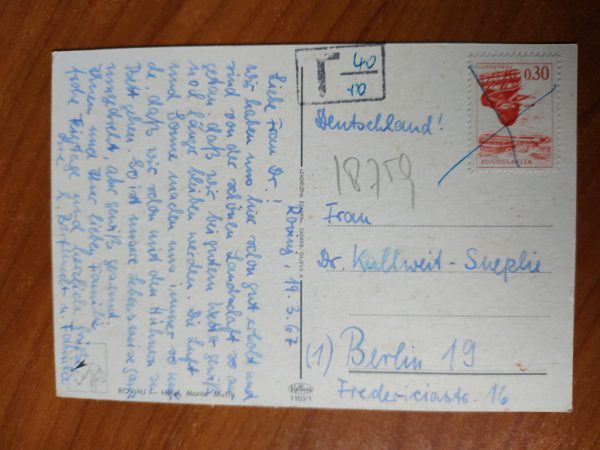 T 40
Liebe Frau Dr.! Rovinj, 19.3.67
Wir haben uns hier schon gut erholt und
sind von der schönen Landschaft so an
getan, daß wir bei gutem Wetter
noch länger bleiben werden. Die Luft
und Sonne machen uns immer so mü
de, daß wir schon mit den Hühnern zu
Bett gehen. So ist unsere Lebensweise ganz
aber gewiß gesund.
Ihnen und Ihrer lieben Familie
frohe Festtage und herzliche Grüße
Ihre
ROVINJ — Hotel Monte Mulin
1103/1
0.30
JUGOSLAVIJA
Deutschland!
18759
Frau
Dr. Kallweit-
(1) Berlin 19
Fredericiastr. 16